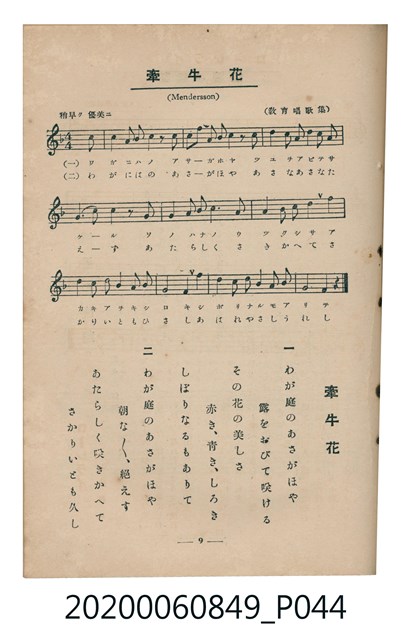 花牛牽
(Mendersson)
稍早ク優美ニ
(教育唱歌集)
(一) ワガニハノ アサーガホヤ ツユヲオビテサ
(二) わがにはの あさーがほや あさなあさなた
ケール ソノハナノ ウツクシサア
えーず あたらしく さきかへてさ
カキアヲキシロキ シボリナルモアリテ
かりいともひさし あはれやさしうれし
牽牛花
一 わが庭のあさがほや
露をおびて咲ける
その花の美しさ
赤き、青き、しろき
しぼりなるもありて
二 わが庭のあさがほや
朝な〱、絶えす
あたらしく咲きかへて
さかりいとも久し
— 9 —
20200060849_P044